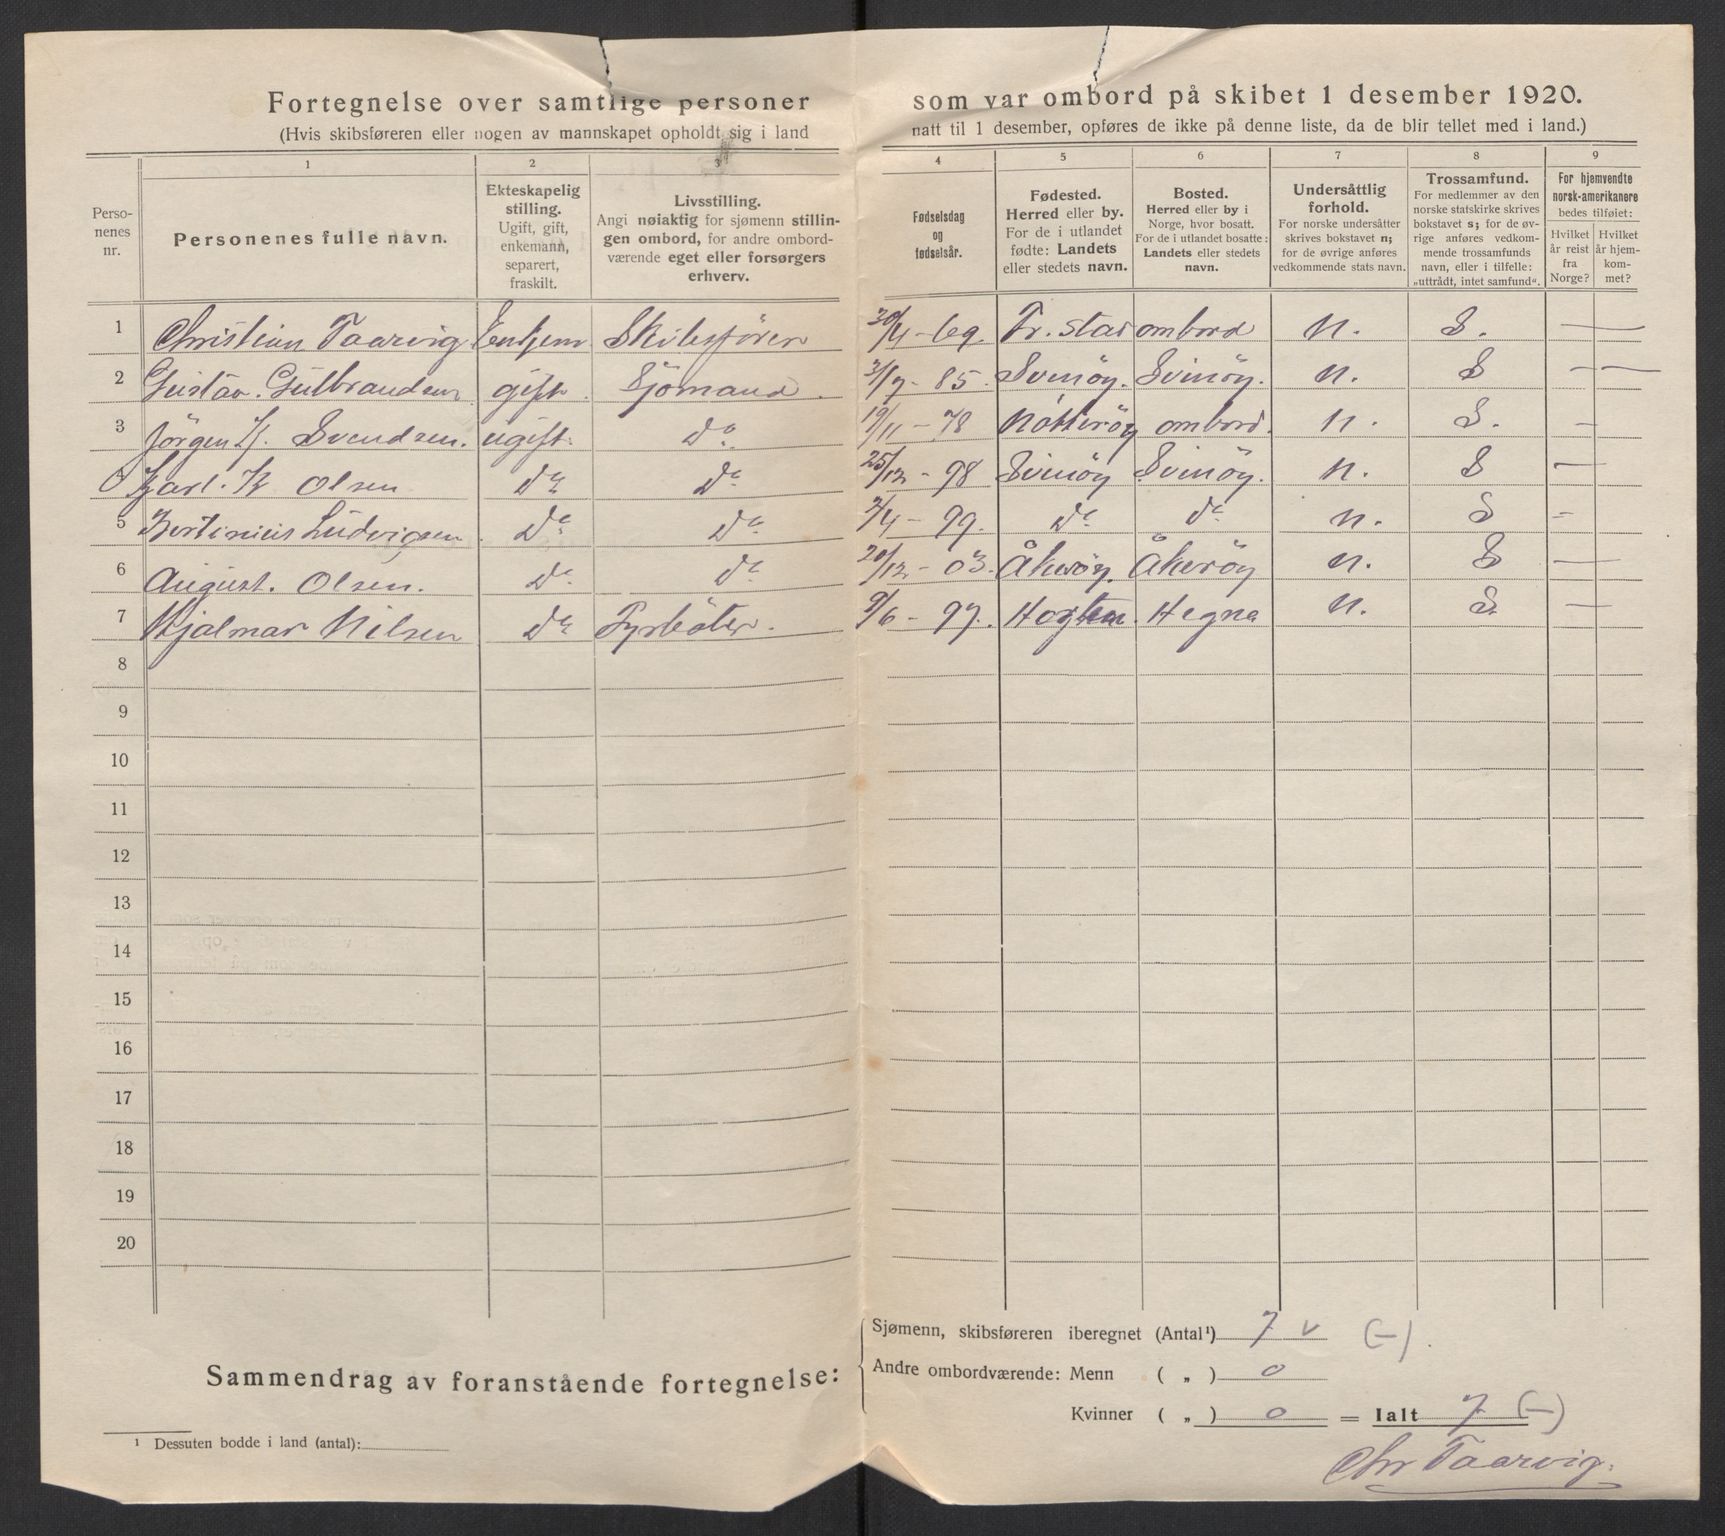 Fortegnelse over samtlige personer som var ombord på skibet 1 desember 1920.
(Hvis skibsføreren eller nogen av mannskapet opholdt sig i land natt til 1 desember, opføres de ikke på denne liste, da de blir tellet med i land.)
Perso-
nenes
nr.
1
Personenes fulle navn.
2
Ekteskapelig
stilling.
Ugift, gift,
enkemann,
separert,
fraskilt.
3
Livsstilling.
Angi nøiaktig for sjømenn stillin-
gen ombord, for andre ombord-
værende eget eller forsørgers
erhverv.
4
Fødselsdag
og
fødselsår.
5
Fødested.
Herred eller by.
For de i utlandet
fødte: Landets
eller stedets navn.
6
Bosted.
Herred eller by i
Norge, hvor bosatt.
For de i utlandet bosatte:
Landets eller stedets
navn.
7
Undersåttlig
forhold.
For norske undersåtter
skrives bokstavet n;
for de øvrige anføres
vedkommende stats navn.
8
Trossamfund.
For medlemmer av den
norske statskirke skrives
bokstavet s; for de øv-
rige anføres vedkom-
mende trossamfunds
navn, eller i tilfelle:
„uttrådt, intet samfund“.
9
For hjemvendte
norsk-amerikanere
bedes tilføiet:
Hvilket
år reist
fra
Norge?
Hvilket
år hjem-
kom-
met?
1 Christian Taarvig enkjem Skibsfören 30/4 - 69. Fr.stad ombord n. S. —
2 Gustav. Gulbrandsen gift. Sjömand. 3/7 - 85. Svinöy. Svinöy. n. S — —
3 Jörgen H. Svendsen. ugift. do 19/11 - 78 Nötteröy ombord. n. S. —
4 Karl. K Olsen do do 25/12 - 98 Svinöy Svinöy. n. S —
5 Bertinius Ludvigsen. do do 2/4 - 99. do do n. S =
6 August. Olsen. do do 20/12 - 03. Åkeröy. Åkeröy n. S —
7 Hjalmar Nilsen do Fyrböter. 9/6 - 97. Horten. Hegna n. S. —
8
9
10
11
12
13
14
15
16
17
18
19
20
Sammendrag av foranstående fortegnelse:
Sjømenn, skibsføreren iberegnet (Antal¹) 7 v (—).
Andre ombordværende: Menn ( „ ) 0
Kvinner ( „ ) 0 = Ialt 7 (—)
¹ Dessuten bodde i land (antal):
Chr Taarvig.